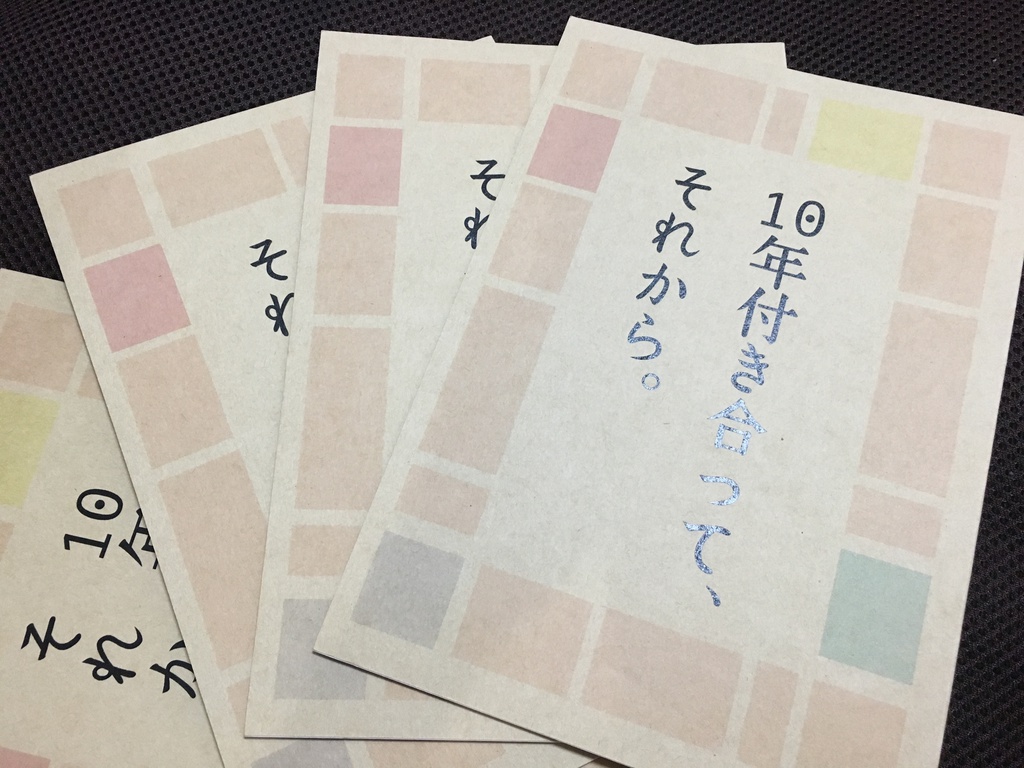 10年付き合って、
それから。
それ
それ
10年
それか